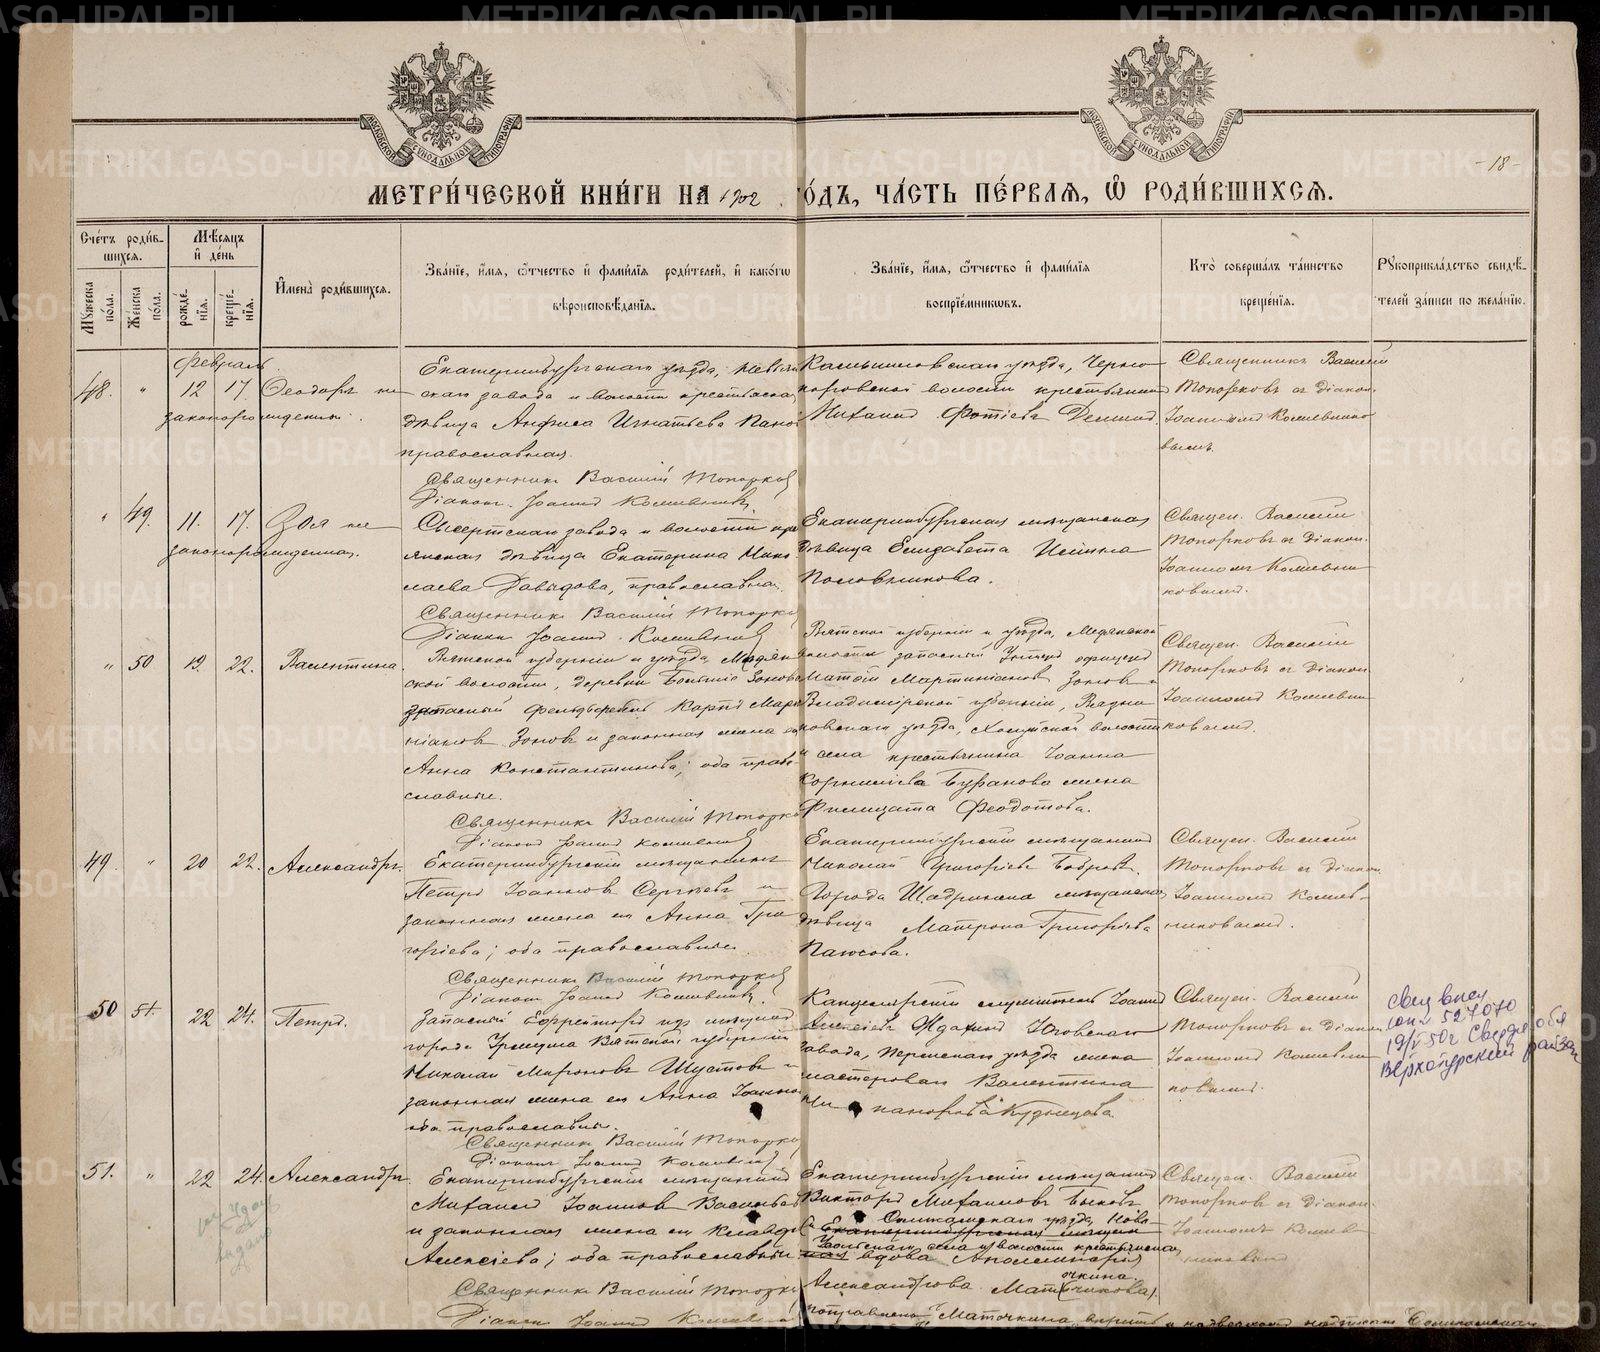 МОСКОВСКОЙ СѴНОДАЛЬНОЙ ТИПОГРАФІИ
МОСКОВСКОЙ СѴНОДАЛЬНОЙ ТИПОГРАФІИ
-18-
МЕТРИ́ЧЕСКОЙ КНИ́ГИ НА 1902 ГО́ДЪ, ЧА́СТЬ ПЕ́РВАЯ, Ѡ҆ РОДИ́ВШИХСЯ.
Сче́тъ роди́в-
шихся.
Мѣ́сяцъ
и҆ де́нь
Му́жеска по́ла.
Же́нска по́ла.
рожде́нїѧ.
креще́нїѧ.
И҆мена̀ роди́вшихся.
Зва́нїе, и҆́мя, ѻ҆́тчество и҆ фами́лїя роди́телей, и҆ како́гѡ
вѣроисповѣ́данїя.
Зва́нїе, и҆́мя, ѻ҆́тчество и҆ фами́лїя
воспрїе́мникѡвъ.
Кто̀ соверша́лъ та́инство
креще́нїя.
Рꙋкоприкла́дство свидѣ́-
телей за́писи по жела́нїю.
Февраль
48. " 12 17. Ѳеодоръ не
законорожденный.
Екатеринбургскаго уѣзда, Невьян
скаго завода и волости крестьянская
дѣвица Анфиса Игнатьева
православная.
Священникъ Василій Топорков
Діаконъ Іоаннъ Кошевник
Камышловскаго уѣзда,
волости крестьянинъ
Михаилъ Фотіевъ
Священникъ Василій
Топорковъ съ діакон.
Іоанномъ Кошевнико
вымъ.
" 49. 11. 17. Зоя не
законорожденная.
Сысертскаго завода и волости кре
янская дѣвица Екатерина Нико
лаева Давыдова, православная
Священникъ Василій Топорко
Діаконъ Іоаннъ Кошевник
Екатеринбургская мѣщанская
дѣвица Елизавета
Половникова.
Священ. Василій
Топорковъ съ діакон.
Іоанномъ Кошевни
ковымъ.
" 50 19. 22. Валентина.
Вятской губерніи и уѣзда
ской волости, деревни Зоновы
запасный фельдфебель Карпъ Марти
ніановъ Зоновъ и законная жена его
Анна Константинова; оба право
славные.
Священникъ Василій Топорко
Діаконъ Іоаннъ Кошевник
Вятской губерніи и уѣзда,
волости запасный унтеръ офицеръ
Матѳій Мартиніановъ Зоновъ и
Владимірской губерніи, Вязни
ковскаго уѣзда, Холуйской волости
и села крестьянина Іоанна
Корниліева Буранова жена
Филицата Феодотова.
Священ. Василій
Топорковъ съ діакон
Іоанномъ Кошевни
ковымъ.
49. " 20 22. Александръ.
Екатеринбургскій мѣщанинъ
Петръ Іоанновъ Сергѣевъ и
законная жена его Анна Гри
горіева; оба православные.
Священникъ Василій Топорков
Діаконъ Іоаннъ Кошевник.
Екатеринбургскій мѣщанинъ
Николай Григоріевъ Бобровъ.
Города Шадринска мѣщанская
дѣвица Матрона Григоріева
Паюсова.
Священ. Василій
Топорковъ съ діакон
Іоанномъ Кошев-
никовымъ.
50 51. 22 24. Петръ.
Запасный Ефрейторъ изъ мѣщанъ
города Уржума Вятской губерніи
Николай Мироновъ Шустовъ и
законная жена его Анна Іоанно
оба православные.
Священникъ Василій Топорко
Діаконъ Іоаннъ Кошевник
Канцелярскій служитель Іоаннъ
Алексіевъ Жданинъ Юговскаго
завода, Пермскаго уѣзда жена
мастероваго Валентина
Ни каноровa Кудрищова
Священ. Василій
Топорковъ съ діакон
Іоанномъ Кошевни
ковымъ.
527070
19/V 50г Свердл. обл
Верхотурский район
51. " 22 24. Александръ.
Екатеринбургскій мѣщанинъ
Михаилъ Іоанновъ Васильевъ
и законная жена его Клавдія
Алексіева; оба православные.
Священникъ Василій Топорко
Діаконъ Іоаннъ
Екатеринбургскій мѣщанинъ
Викторъ Михаиловъ Быковъ
и Екатеринбургская Осинскаго уѣзда, Ново
села и волости крестьянская
вдова Аполлинарія
Александрова Маточкина
Священ. Василій
Топорковъ съ діакон.
Іоанномъ Кошев
никовымъ
Маточкина
METRIKI.GASO-URAL.RU